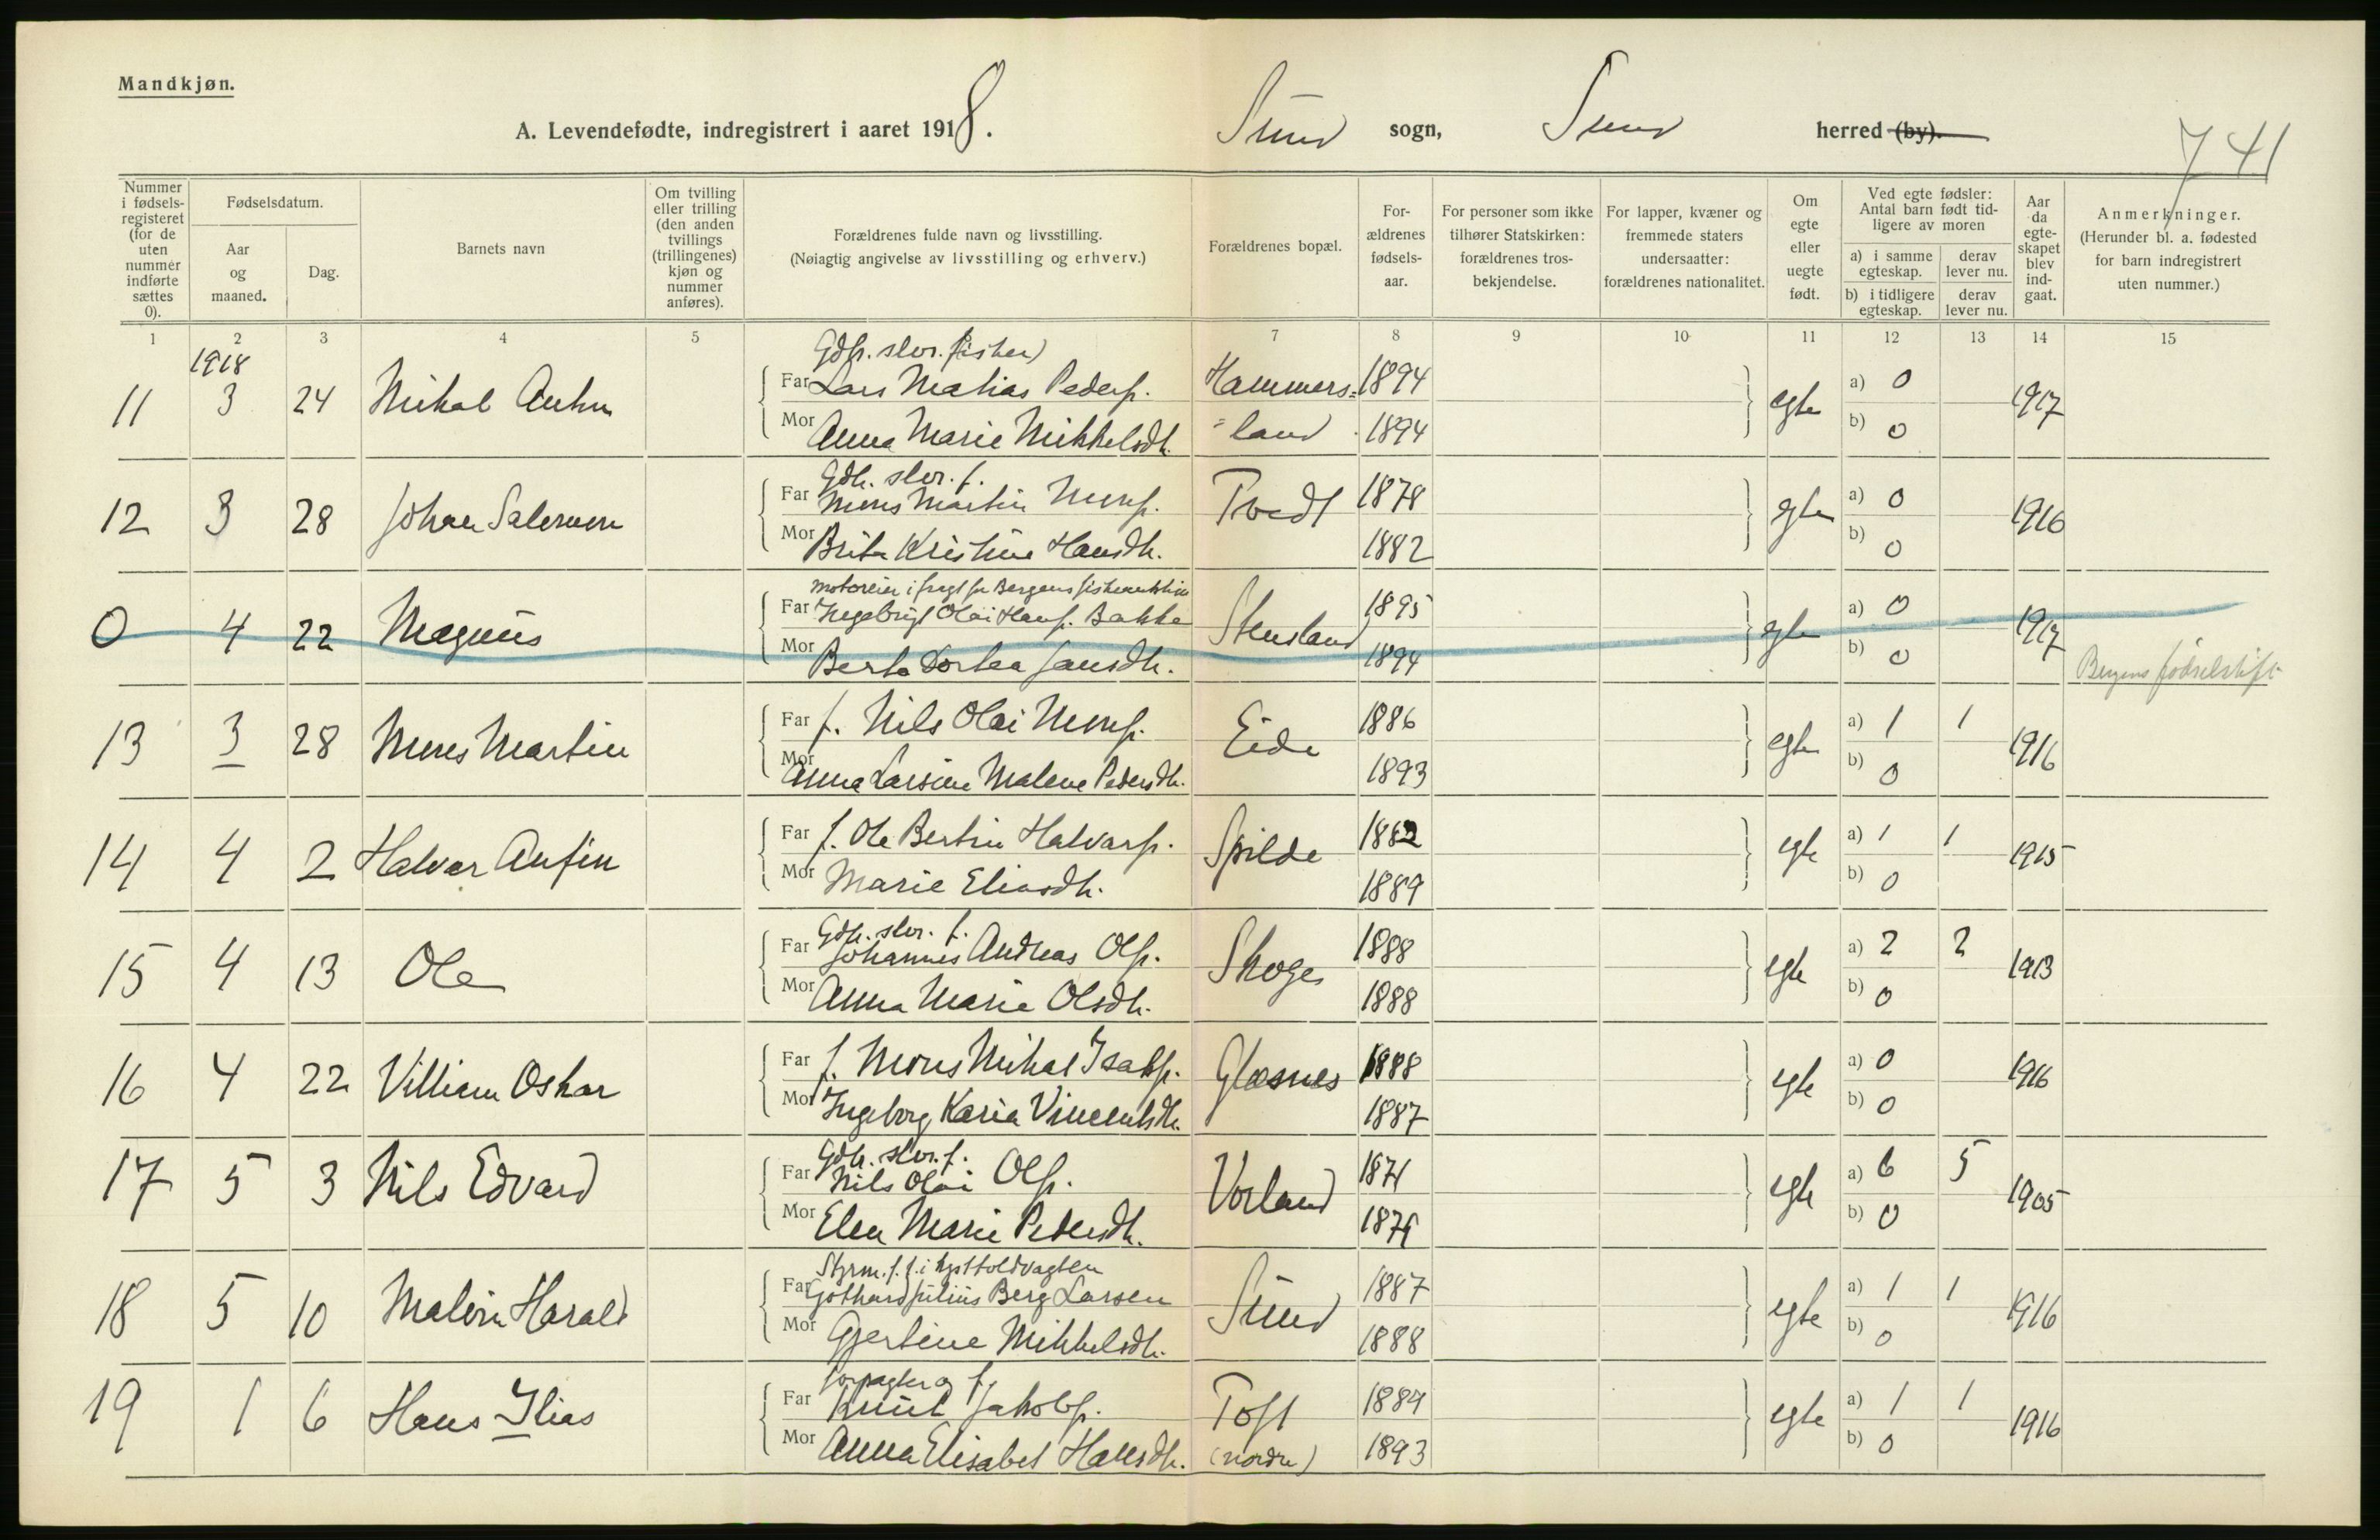 Mandkjøn.
A. Levendefødte, indregistrert i aaret 1918. Sund sogn, Sund herred (by).
741
Nummer i fødselsregisteret (for de uten nummer indførte sættes 0).
Fødselsdatum.
Aar og maaned.
Dag.
Barnets navn
Om tvilling eller trilling (den anden tvillings (trillingenes) kjøn og nummer anføres).
Forældrenes fulde navn og livsstilling.
(Nøiagtig angivelse av livsstilling og erhverv.)
Forældrenes bopæl.
Forældrenes fødselsaar.
For personer som ikke tilhører Statskirken: forældrenes trosbekjendelse.
For lapper, kvæner og fremmede staters undersaatter: forældrenes nationalitet.
Om egte eller uegte født.
Ved egte fødsler: Antal barn født tidligere av moren
a) i samme egteskap. derav lever nu.
b) i tidligere egteskap. derav lever nu.
Aar da egteskapet blev indgaat.
Anmerkninger.
(Herunder bl. a. fødested for barn indregistrert uten nummer.)
1 2 3 4 5 7 8 9 10 11 12 13 14 15
1918
Gdbr. slvr. fisker)
11 3 24 Mikal Far Lars Matias Pedersn. Hammers= 1894 egte a) 0 1917
Mor Anna Marie Mikkelsdtr. =land 1894 b) 0
Gdbr. slvr. f.
12 3 28 Johan Far Mons Martin Monsn. Tvedt 1878 egte a) 0 1916
Mor Brita Kristine Hansdtr. 1882 b) 0
Motoreier i fragt for Bergens
0 4 22 Magnus Far Ingebrigt Olai Hansn. Bakke Stensland 1895 egte a) 0 1917
Mor Berta Dortea Jansdtr. 1894 b) 0 Bergens fødselstift.
13 3 28 Mons Martin Far f. Nils Olai Monsn. Eide 1886 egte a) 1 1 1916
Mor Anna Larsine Malene Pedersdtr. 1893 b) 0
14 4 2 Halvar Anfin Far f. Ole Bertin Halvarsn. Spilde 1882 egte a) 1 1 1915
Mor Marie Eliasdtr. 1889 b) 0
Gdbr. slvr. f.
15 4 13 Ole Far Johannes Andreas Olsn. Skoge 1888 egte a) 2 2 1913
Mor Anna Marie Olsdtr. 1888 b) 0
16 4 22 Villiam Oskar Far f. Mons Mikal Isaksn. Glesnes 1888 egte a) 0 1916
Mor Ingeborg Karia Vincentsdtr. 1887 b) 0
Gdbr. slvr. f.
17 5 3 Nils Edvard Far Nils Olai Olsn. Vorland 1871 egte a) 6 5 1905
Mor Elen Marie Pedersdtr. b) 0
Styrm. f. f. i kysttoldvagten
18 5 10 Malvin Harald Far Gothard Julius Berg Larsen Sund 1887 egte a) 1 1 1916
Mor Gjertine Mikkelsdtr. 1888 b) 0
forpagter og f.
19 1 6 Hans Ilias Far Knut Jakobsn. Toft 1889 egte a) 1 1 1916
Mor Anna Elisabet Hansdtr. (nordre) 1893 b) 0